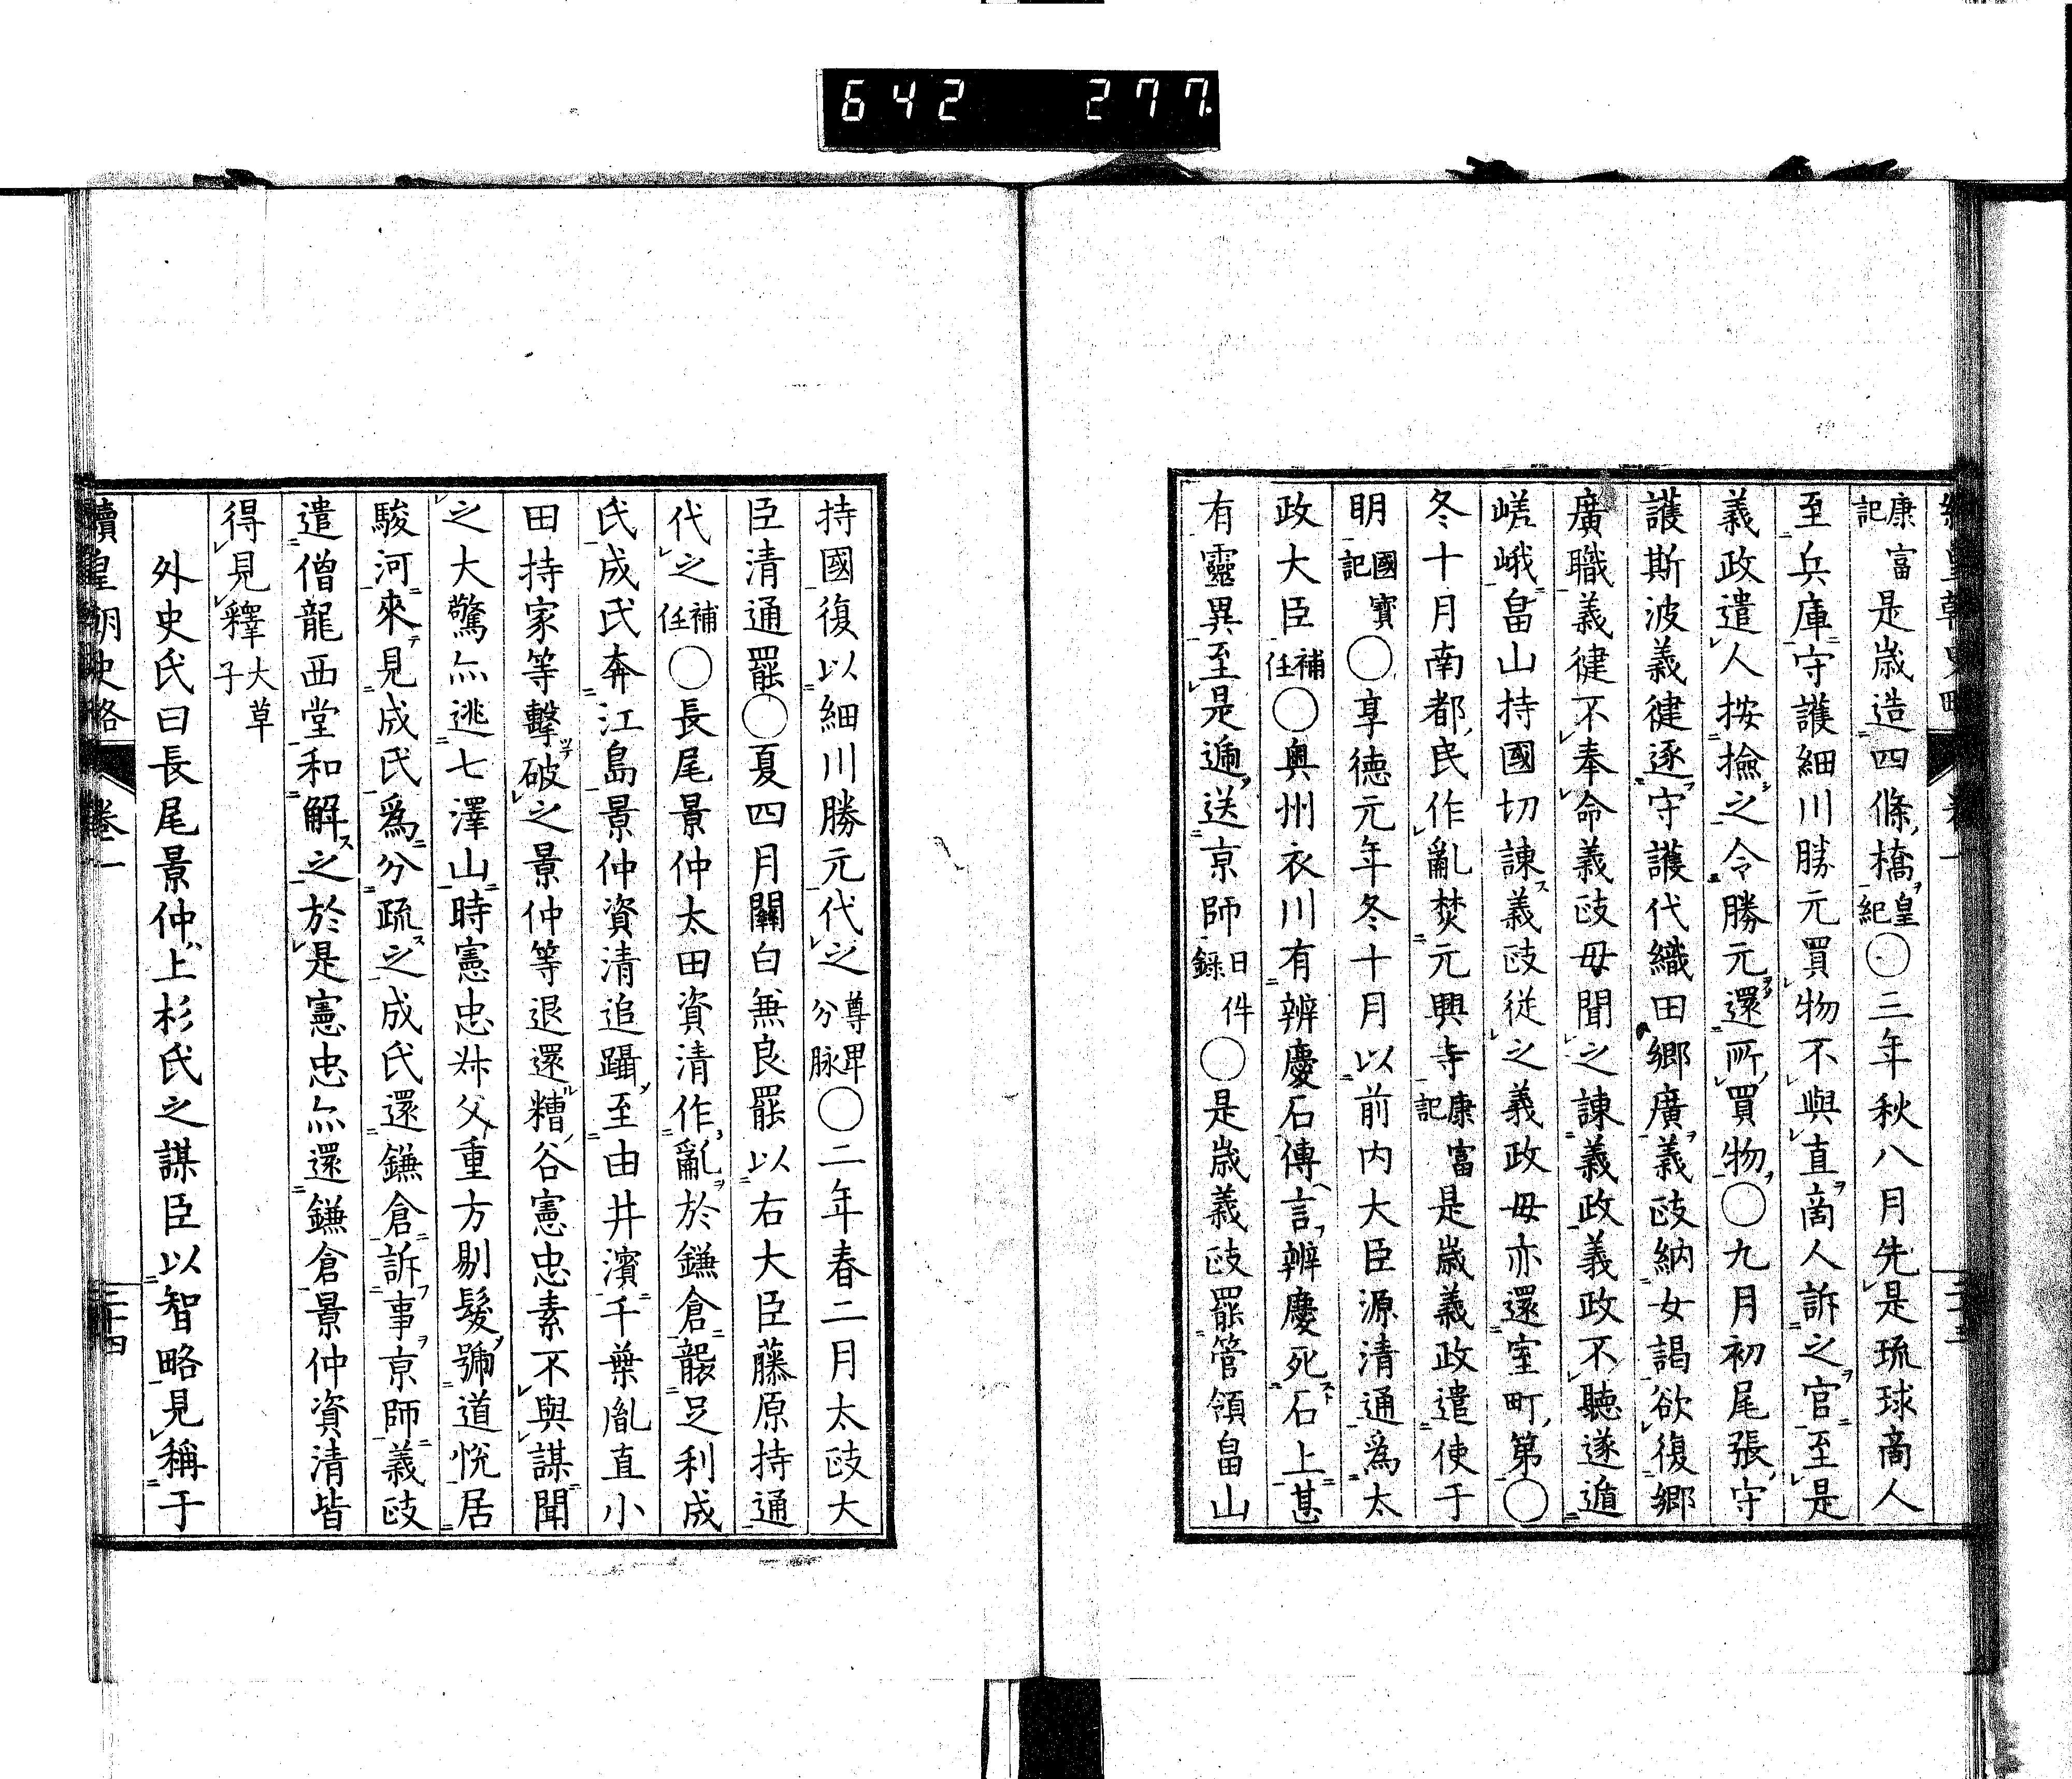 642 277
康富記是歳造四條橋皇紀○三年秋八月先是琉球商人
至兵庫守護細川勝元買物不與直商人訴之官至是
義政遣人按撿之令勝元還所買物○九月初尾張守
護斯波義健逐守護代織田郷廣義政納女謁欲復郷
廣職義健不奉命義政母聞之諫義政義政不聽遂遁
嵯峨畠山持國切諫義政從之義政母亦還室町第○
冬十月南都民作亂焚元興寺康富記是歳義政遣使于
明國寶記○享徳元年冬十月以前内大臣源清通爲太
政大臣補任○奥州衣川有辨慶石傳言辨慶死石上甚
有靈異至是遁送京師日件録○是歳義政罷管領畠山
持國復以細川勝元代之尊卑分脉○二年春二月太政大
臣清通罷○夏四月關白兼良罷以右大臣藤原持通
代之補任○長尾景仲太田資清作亂於鎌倉襲足利成
氏成氏奔江島景仲資清追躡至由井濱千葉胤直小
田持家等擊破之景仲等退還糟谷憲忠素不與謀聞
之大驚亦逃七澤山時憲忠叔父重方剔髮號道悦居
駿河來見成氏爲分疏之成氏還鎌倉訴事京師義政
遣僧龍西堂和解之於是憲忠亦還鎌倉景仲資清皆
得見釋大草子
外史氏曰長尾景仲上杉氏之謀臣以智略見稱于
續皇朝史略 卷一 二十四